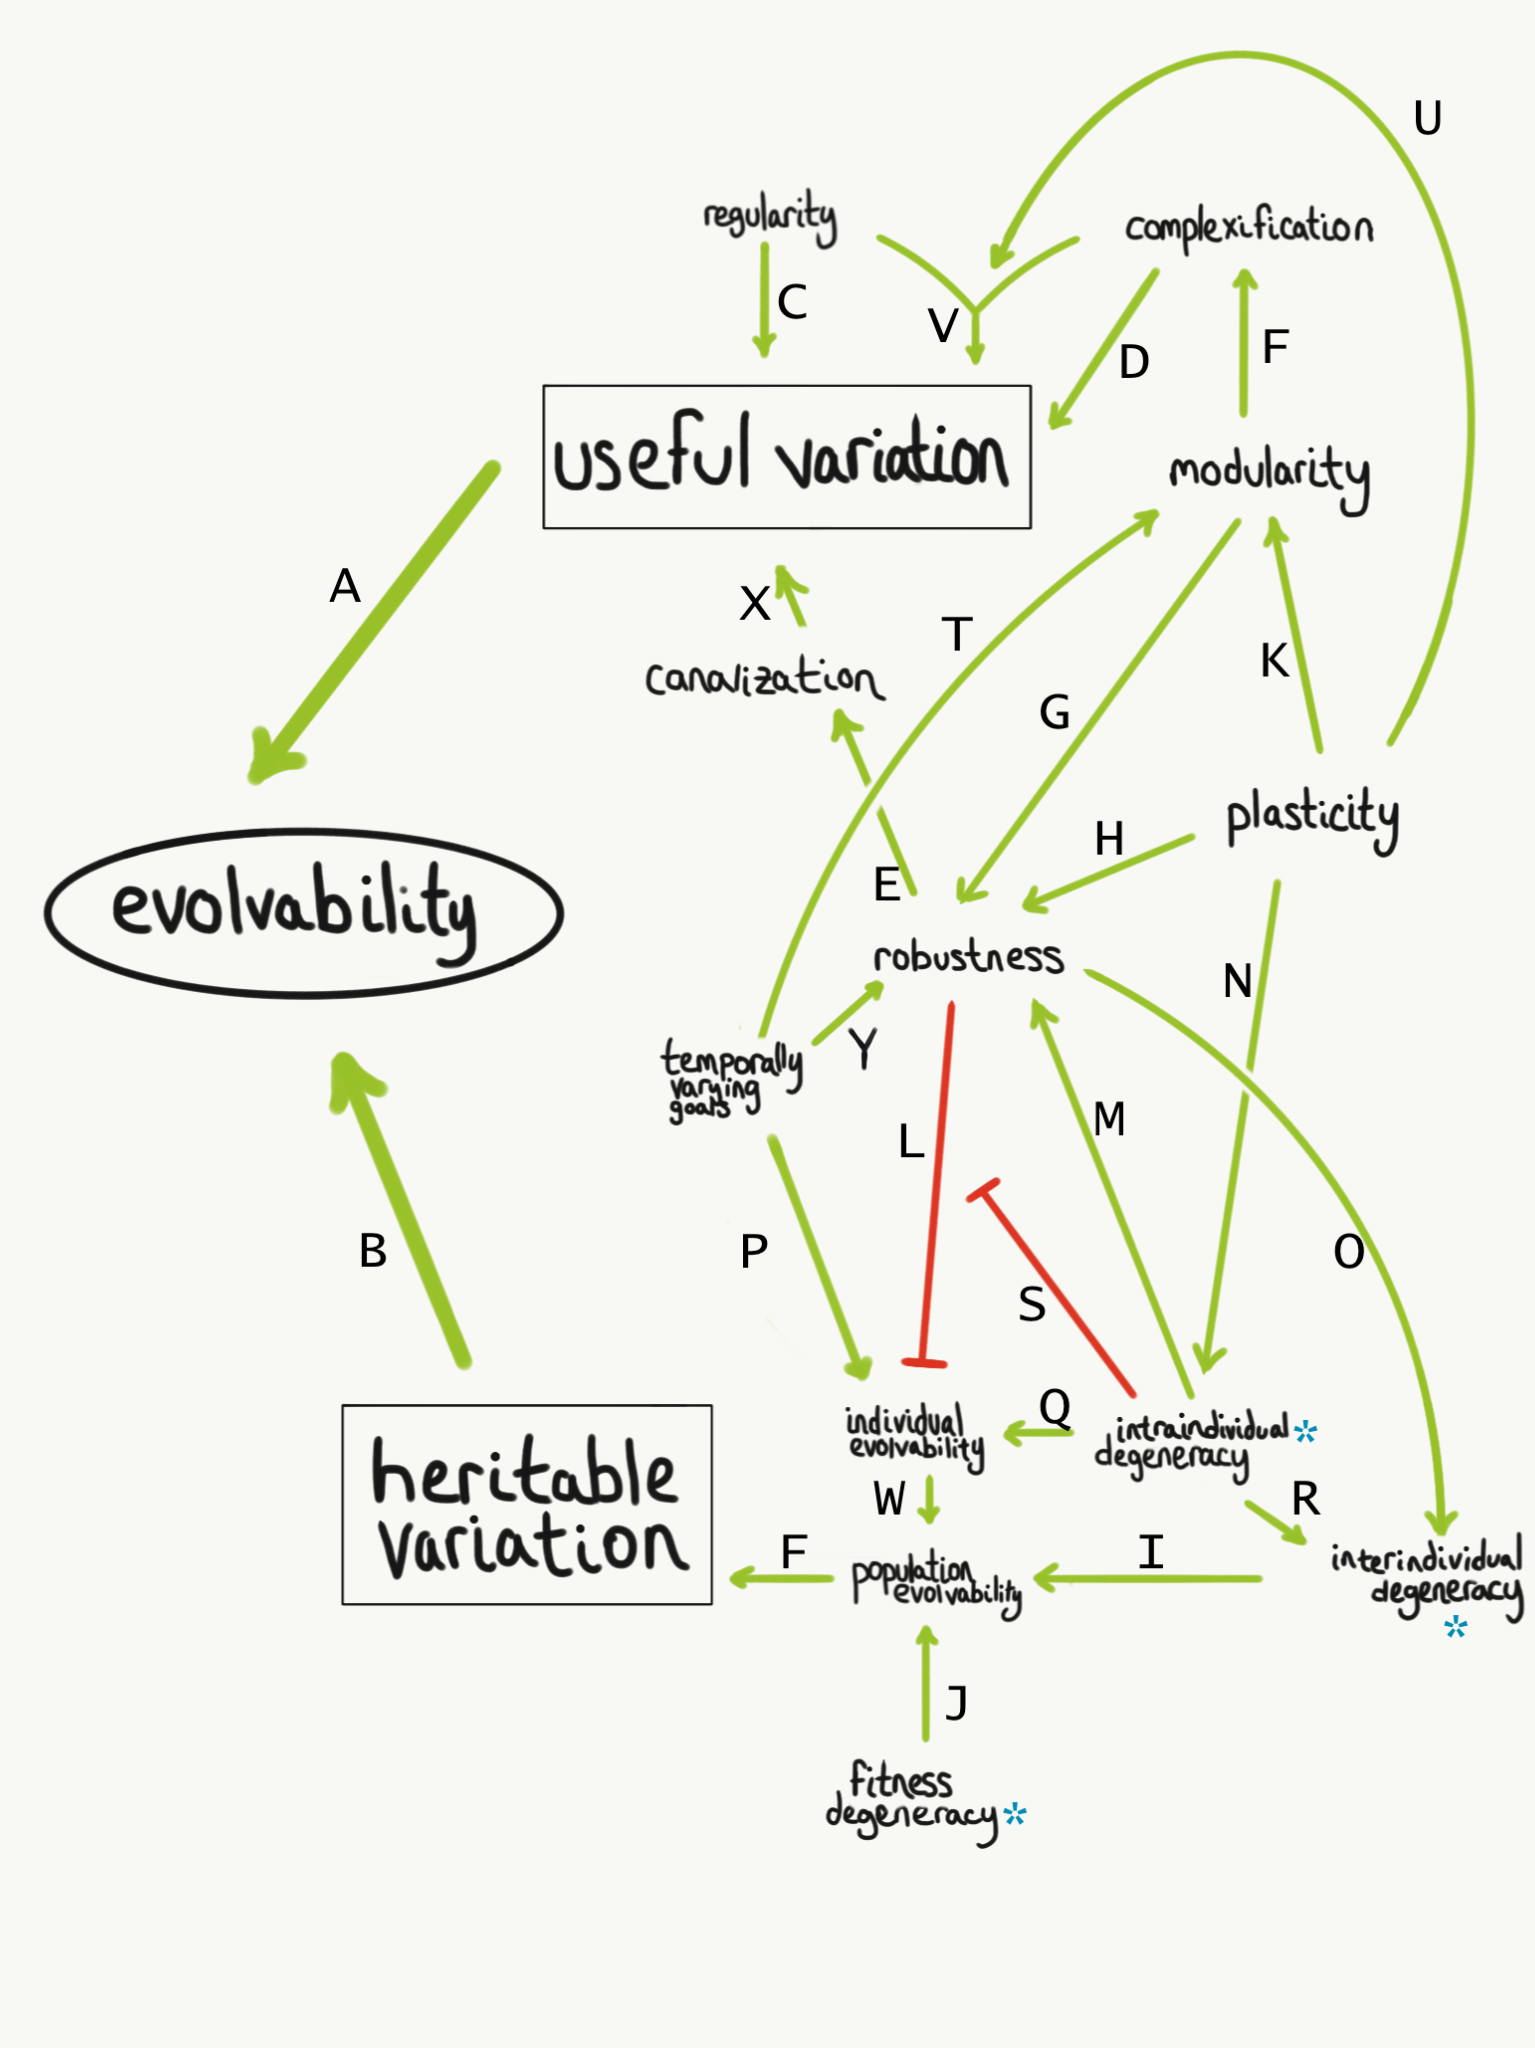 U
regularity
complexification
C
V
D
F
useful variation
modularity
A
X
T
K
canalization
G
plasticity
H
E
evolvability
robustness
N
Y
temporally
varying
goals
L
M
P
B
O
S
Q
individual
evolvability
intraindividual*
degeneracy
heritable
variation
W
R
F
I
population
evolvability
interindividual
degeneracy
*
J
fitness
degeneracy*